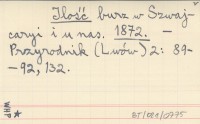 Ilość burz w Szwaj-
caryi i u nas. 1872. —
Przyrodnik (Lwów) 2: 89-
-92, 132.
WHP
BJ/081/0775